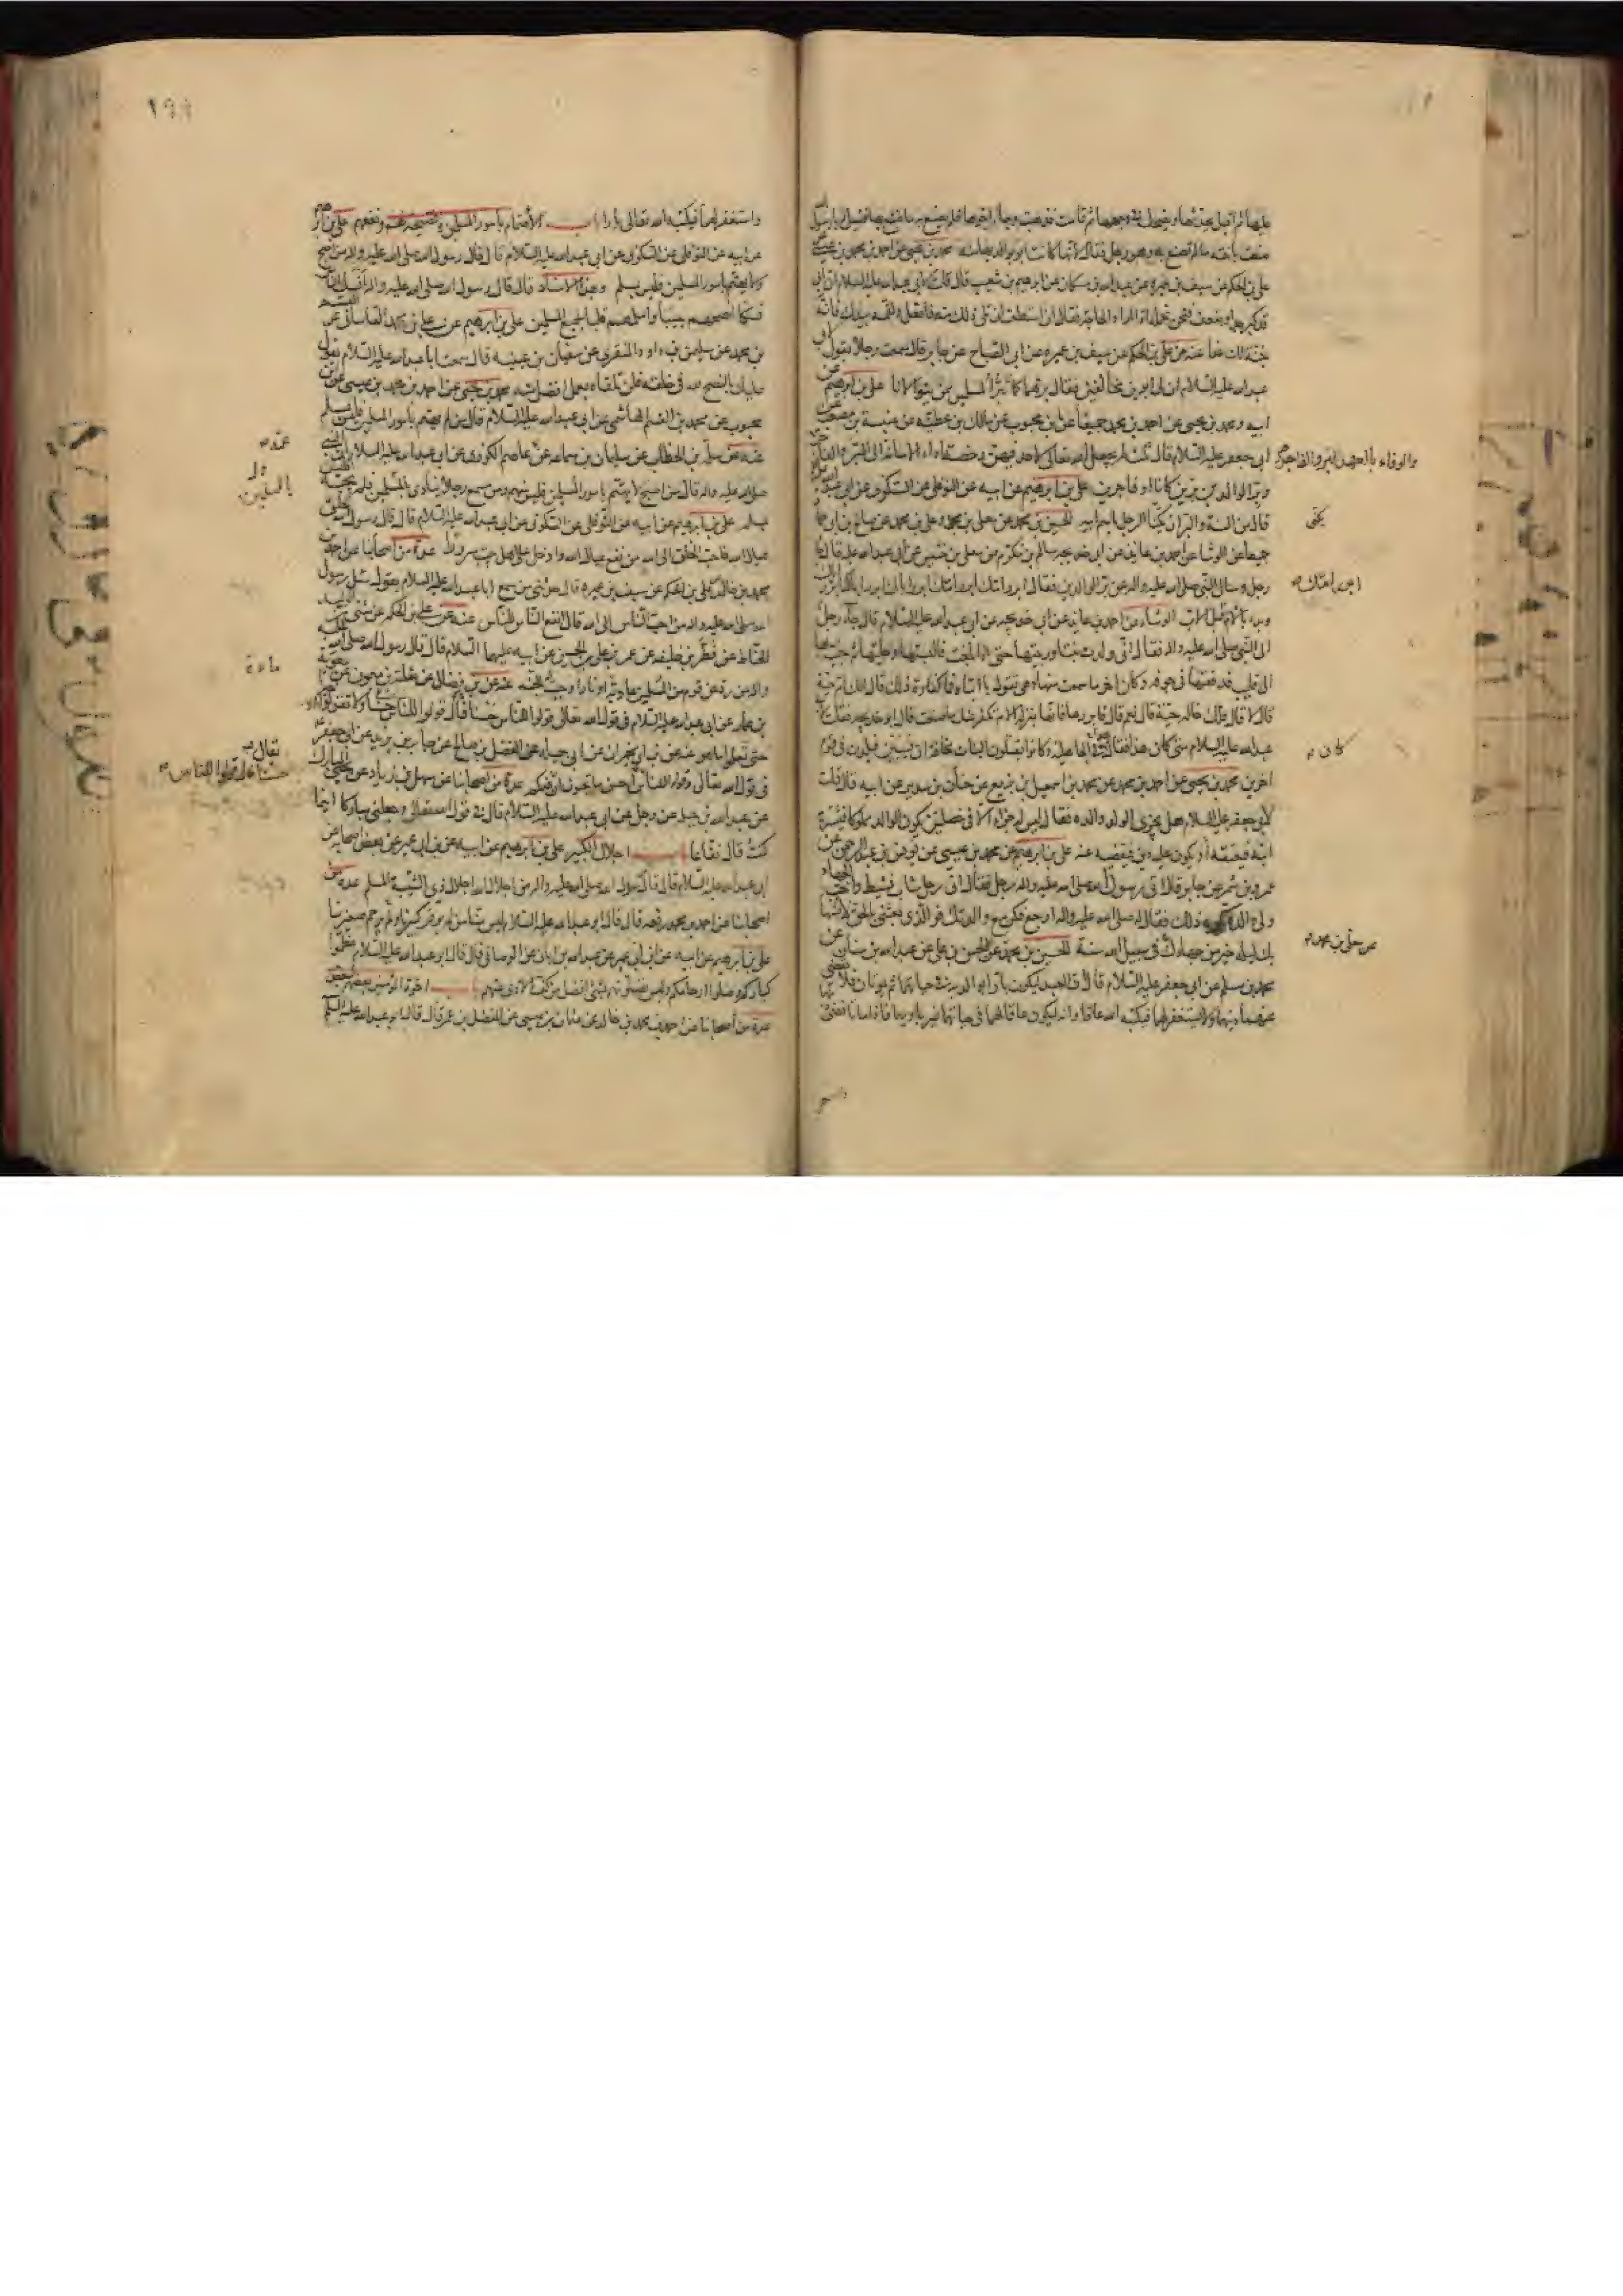 عليها ثم اقبل يحدثها ويضحك في وجهها ثم قامت فذهبت وجاء اخوها فلم يصنع به ما صنع بها فقيل يا رسول
صنعت باخته ما لم تصنع به وهو رجل فقال لانها كانت ابر بوالديها منه محمد بن يحيى عن احمد بن محمد بن عيسى عن
علي بن الحكم عن سيف بن عميرة عن عبد الله بن مسكان عن ابرهيم بن شعيب قال قلت لابي عبد الله عليه السلام ان ابي
قد كبر جدا وضعف فنحن نحمله اذا اراد الحاجة فقال ان استطعت ان تلي ذلك منه فافعل ولقمه بيدك فانه
جنة لك غدا عنه عن علي بن الحكم عن سيف بن عميرة عن ابي الصباح عن جابر قال سمعت رجلا يقول لابي
عبد الله عليه السلام ان لي ابوين مخالفين فقال برهما كما تبر المسلمين ممن يتولانا علي بن ابرهيم عن
ابيه ومحمد بن يحيى عن احمد بن محمد جميعا عن ابن محبوب عن مالك بن عطية عن عنبسة بن مصعب عن
ابي جعفر عليه السلام قال ثلث لم يجعل الله تعالى لاحد فيهن رخصة اداء الامانة الى البر والفاجر
والوفاء بالعهد للبر والفاجر
وبر الوالدين برين كانا او فاجرين علي بن ابرهيم عن ابيه عن النوفلي عن السكوني عن ابي عبد الله
قال من السنة والبر ان يكنى الرجل باسم ابيه الحسين بن محمد عن معلى بن محمد وعلي بن محمد عن صالح بن ابي حماد
يكنى
جميعا عن الوشا عن احمد بن عائذ عن ابي خديجة سالم بن مكرم عن معلى بن خنيس عن ابي عبد الله عليه قال جاء
رجل وسال النبي صلى الله عليه واله عن بر الوالدين فقال ابرر امك ابرر امك ابرر اباك ابرر اباك
ابرر امك
وبدا بالام قبل الاب الوشاء عن احمد بن عائذ عن ابي خديجة عن ابي عبد الله عليه السلام قال جاء رجل
الى النبي صلى الله عليه واله فقال اني ولدت بنتا وربيتها حتى اذا بلغت فالبستها وحليتها ثم جئت بها
الى قليب فدفعتها في جوفه وكان اخر ما سمعت منها وهي تقول يا ابتاه فما كفارة ذلك قال الك ام حية
قال لا قال فلك خالة حية قال نعم قال فابررها فانها بمنزلة الام تكفر عنك ما صنعت قال ابو خديجة فقلت لابي
عبد الله عليه السلام متى كان هذا فقال في الجاهلية وكانوا يقتلون البنات مخافة ان يسبين فيلدن في قوم
كان
اخرين محمد بن يحيى عن احمد بن محمد عن محمد بن اسمعيل بن بزيع عن حنان بن سدير عن ابيه قال قلت
لابي جعفر عليه السلام هل يجزي الولد والده فقال ليس له جزاء الا في خصلتين يكون الوالد مملوكا فيشتريه
ابنه فيعتقه او يكون عليه دين فيقضيه عنه علي بن ابرهيم عن محمد بن عيسى عن يونس بن عبد الرحمن عن
عمرو بن شمر عن جابر قال اتى رسول الله صلى الله عليه واله رجل فقال اني رجل شاب نشيط واحب الجهاد
ولي والدة تكره ذلك فقال له صلى الله عليه واله ارجع فكن مع والدتك فوالذي بعثني بالحق لانسها
بك ليلة خير من جهادك في سبيل الله سنة الحسين بن محمد عن الحسن بن علي عن عبد الله بن سنان عن
عن معلى بن محمد
محمد بن مسلم عن ابي جعفر عليه السلام قال ان العبد ليكون بارا بوالديه في حياتهما ثم يموتان فلا يقضي
عنهما دينهما ولا يستغفر لهما فيكتبه الله عاقا وانه ليكون عاقا لهما في حياتهما غير بار بهما فاذا ماتا قضى
واستغفر لهما فيكتبه الله تعالى بارا باب الاهتمام بامور المسلمين والنصيحة لهم ونفعهم علي بن ابرهيم
عن ابيه عن النوفلي عن السكوني عن ابي عبد الله عليه السلام قال قال رسول الله صلى الله عليه واله من اصبح
ولا يهتم بامور المسلمين فليس بمسلم وبهذا الاسناد قال قال رسول الله صلى الله عليه واله انسك الناس
نسكا انصحهم جيبا واسلمهم قلبا لجميع المسلمين علي بن ابرهيم عن علي بن محمد القاساني عن القسم
بن محمد عن سليمن بن داود المنقري عن سفيان بن عيينة قال سمعت ابا عبد الله عليه السلام يقول
عليك بالنصح لله في خلقه فلن تلقاه بعمل افضل منه محمد بن يحيى عن احمد بن محمد بن عيسى عن ابن
محبوب عن محمد بن القسم الهاشمي عن ابي عبد الله عليه السلام قال من لم يهتم بامور المسلمين فليس بمسلم
عنه عن سلمة بن الخطاب عن سليمان بن سماعة عن عمه عاصم الكوزي عن ابي عبد الله عليه السلام ان النبي
عمه
صلى الله عليه واله قال من اصبح لا يهتم بامور المسلمين فليس منهم ومن سمع رجلا ينادي يا للمسلمين فلم يجبه فليس
يا للمسلمين
بمسلم علي بن ابرهيم عن ابيه عن النوفلي عن السكوني عن ابي عبد الله عليه السلام قال قال رسول الله الخلق
عيال الله فاحب الخلق الى الله من نفع عيال الله وادخل على اهل بيت سرورا عدة من اصحابنا عن احمد بن
محمد بن خالد عن علي بن الحكم عن سيف بن عميرة قال حدثني من سمع ابا عبد الله عليه السلام يقول سئل رسول
الله صلى الله عليه واله من احب الناس الى الله قال انفع الناس للناس عنه عن علي بن الحكم عن مثنى بن الوليد
الحناط عن فطر بن خليفة عن عمر بن علي بن الحسين عن ابيه عليهما السلام قال قال رسول الله صلى الله عليه
واله من رد عن قوم من المسلمين عادية او نارا وجبت له الجنة عنه عن ابن فضال عن ثعلبة بن ميمون عن معوية
بن عمار عن ابي عبد الله عليه السلام في قول الله تعالى قولوا للناس حسنا قال قولوا للناس حسنا ولا تقولوا الا خيرا
حتى تعلموا ما هو عنه عن ابن ابي نجران عن ابي جميلة عن المفضل بن صالح عن جابر بن يزيد عن ابي جعفر
قال
في قول الله تعالى وقولوا للناس حسنا قال قولوا للناس احسن ما تحبون ان يقال فيكم عدة من اصحابنا عن سهل بن زياد عن يحيى بن المبارك
عن عبد الله بن جبلة عن رجل عن ابي عبد الله عليه السلام قال في قول الله تعالى وجعلني مباركا اينما
كنت قال نفاعا باب اجلال الكبير علي بن ابرهيم عن ابيه عن ابن ابي عمير عن بعض اصحابه عن
ابي عبد الله عليه السلام قال قال رسول الله صلى الله عليه واله من اجلال الله اجلال ذي الشيبة المسلم عدة من
اصحابنا عن احمد بن محمد رفعه قال قال ابو عبد الله عليه السلام ليس منا من لم يوقر كبيرنا ولم يرحم صغيرنا
علي بن ابرهيم عن ابيه عن ابن ابي عمير عن عبد الله بن ابان عن الوصافي قال قال ابو عبد الله عليه السلام عظموا
كباركم وصلوا ارحامكم وليس تصلونهم بشيء افضل من كف الاذى عنهم باب اخوة المؤمنين بعضهم لبعض
عدة من اصحابنا عن احمد بن محمد بن خالد عن عثمان بن عيسى عن المفضل بن عمر قال قال ابو عبد الله عليه السلم